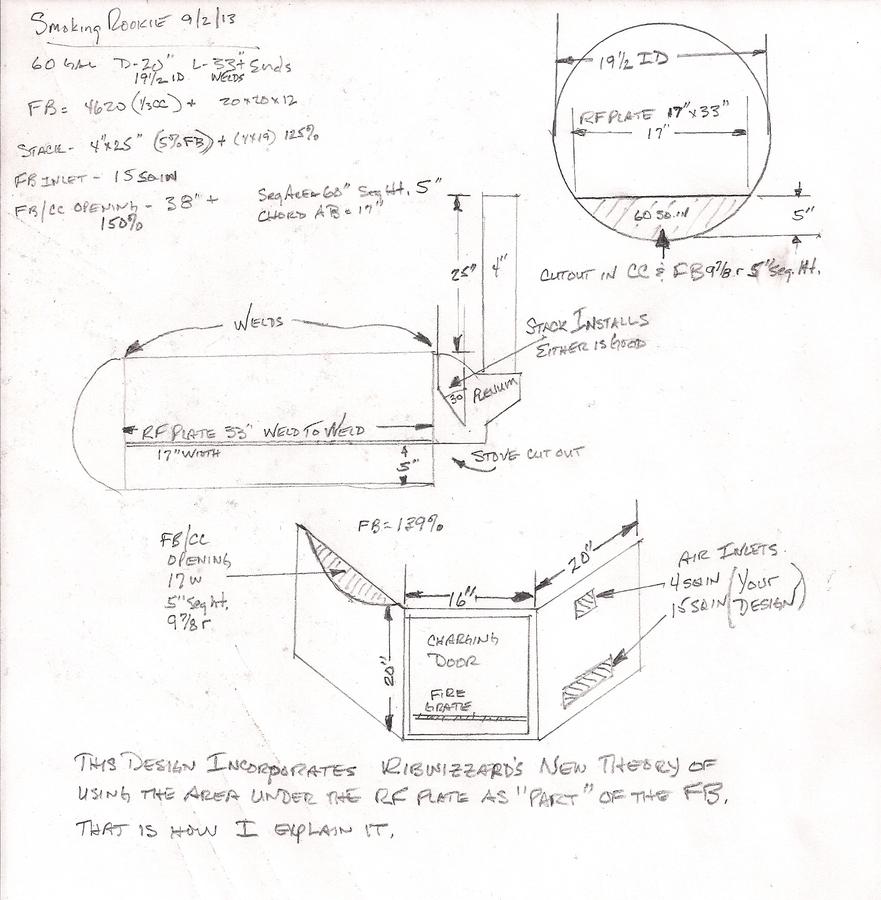 Smoking Rookie 9/2/13
60 GAL D-20" L-33"+ Ends
19 1/2 ID WELDS
FB = 4620 (1/3 CC) + 20x20x12
STACK - 4"x25" (5% FB) + (4x19) 125%
FB INLET - 15 SQ IN
FB/CC OPENING - 38" +
150%
Seg Area 60" Seg Ht. 5"
CHORD AB = 17"
19 1/2 ID
RF PLATE 17" x 33"
17"
60 SQ. IN
5"
CUTOUT IN CC & FB 9 7/8 r 5" Seg. Ht.
25"
4"
WELDS
STACK INSTALLS
EITHER IS GOOD
30
PLENUM
RF PLATE 33" WELD TO WELD
17" WIDTH
5"
STOVE CUT OUT
FB = 139%
FB/CC
OPENING
17 W
5" Seg Ht.
9 7/8 r.
16"
20"
20"
CHARGING
DOOR
FIRE
GRATE
AIR INLETS
4 SQ IN (YOUR
15 SQ IN DESIGN)
THIS DESIGN INCORPORATES RIBWIZZARD'S NEW THEORY OF
USING THE AREA UNDER THE RF PLATE AS "PART" OF THE FB.
THAT IS HOW I EXPLAIN IT.